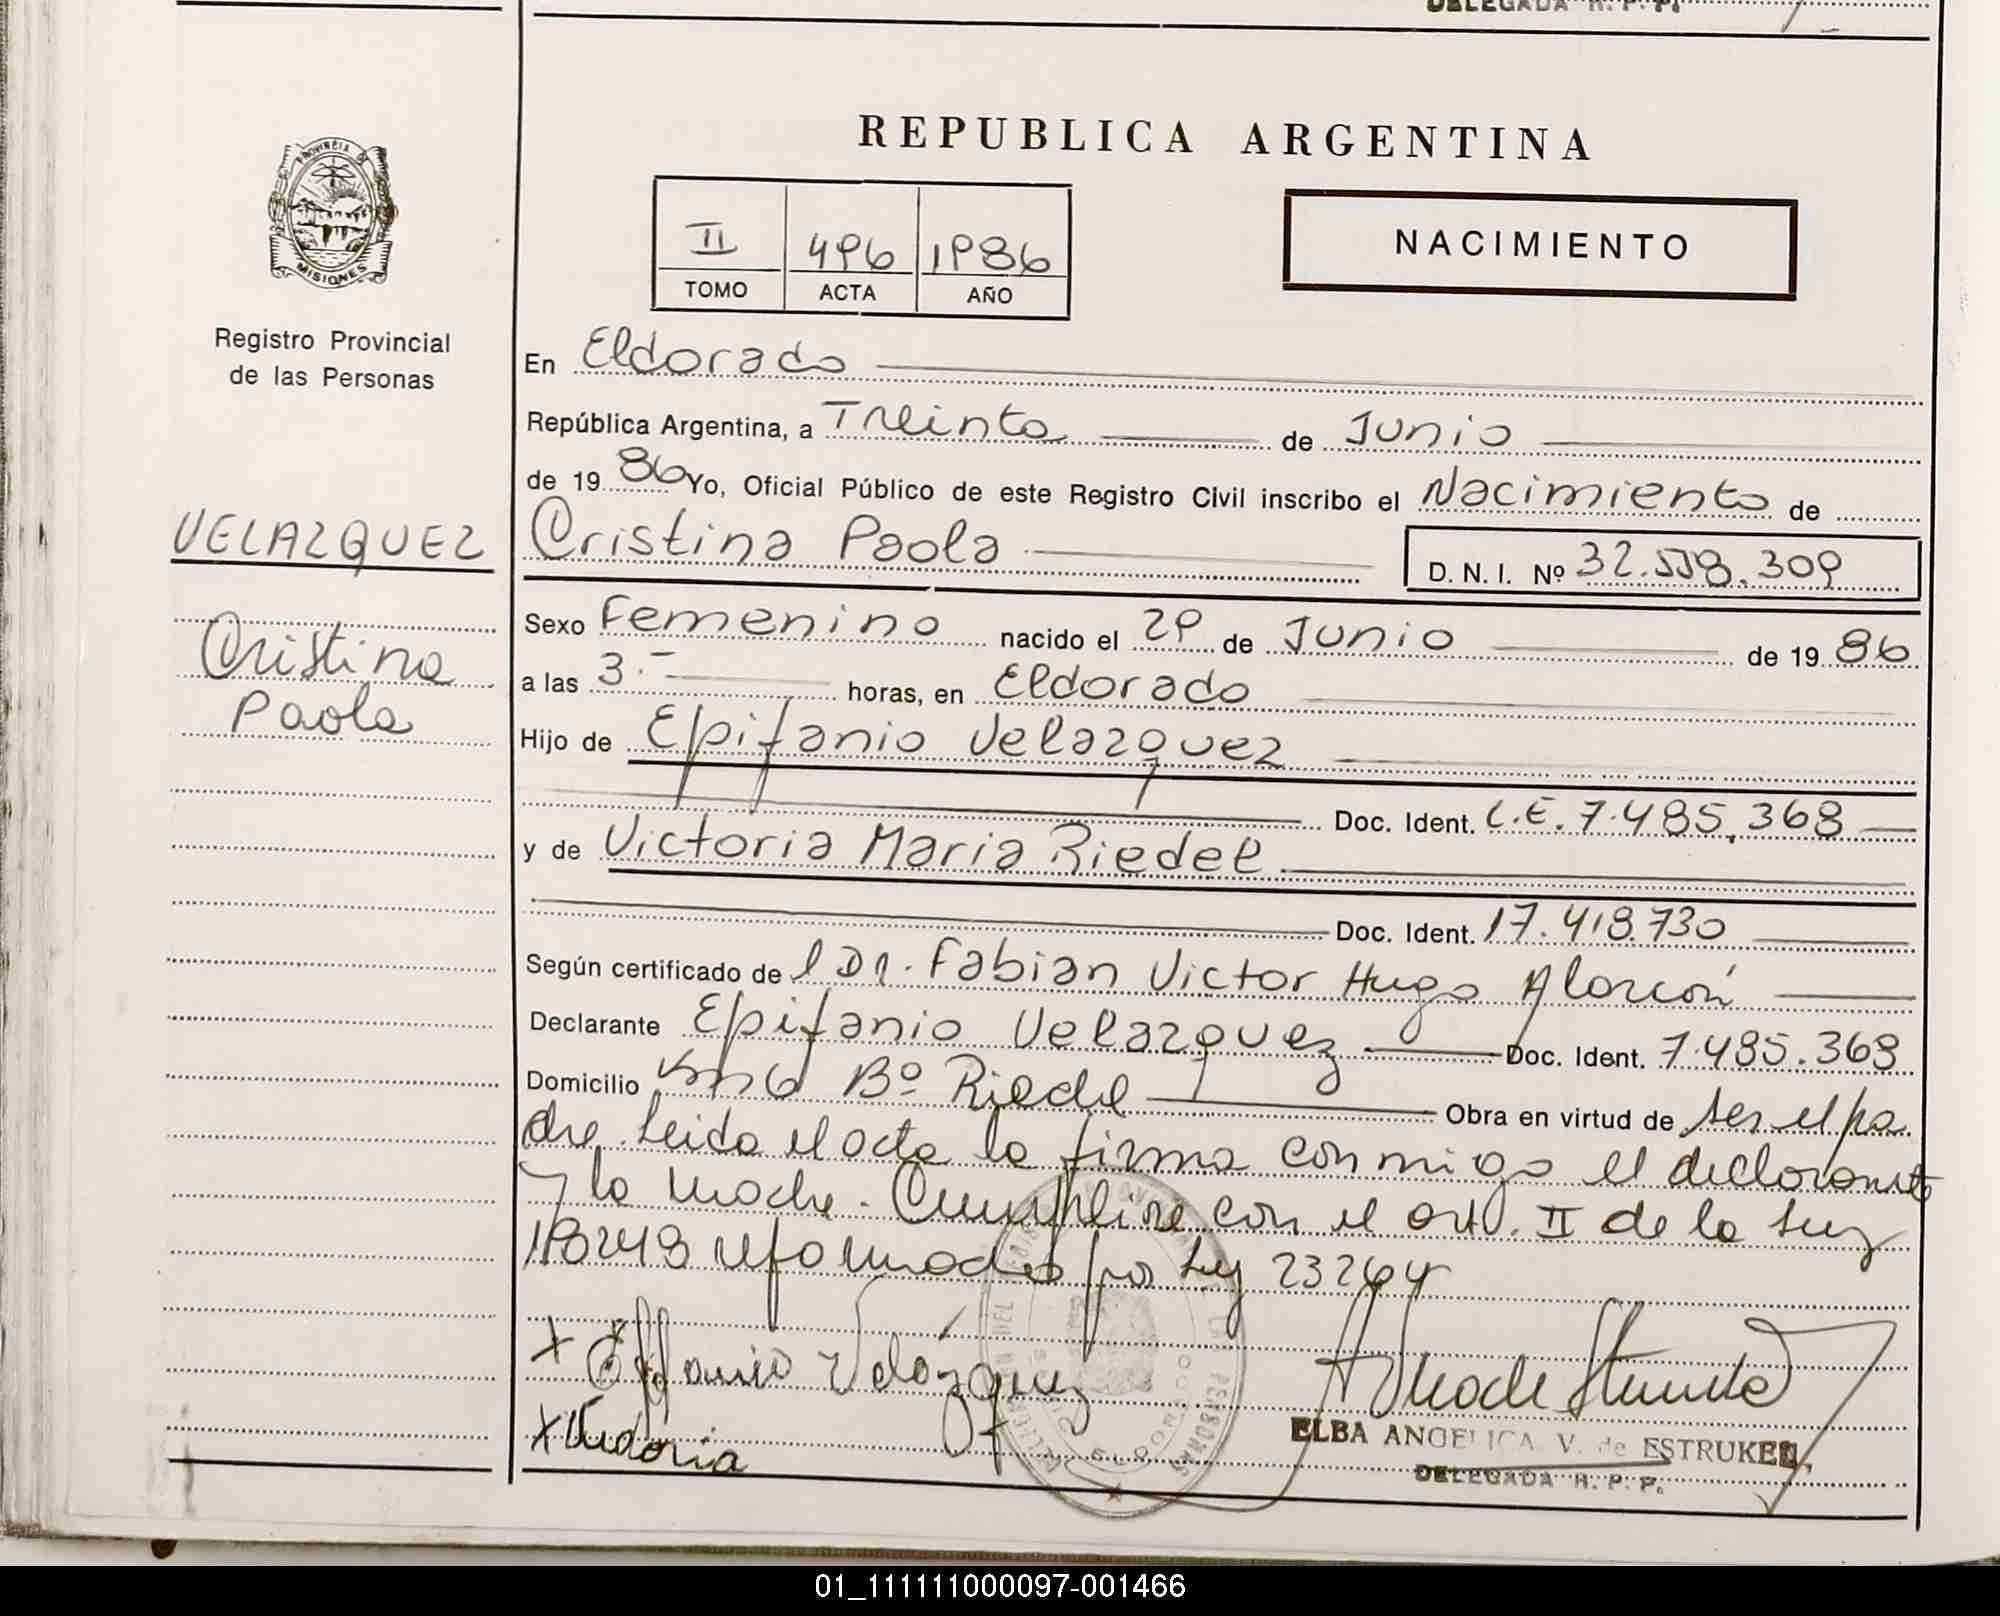 DELEGADA R. P. P.
REPUBLICA ARGENTINA
PROVINCIA DE
MISIONES
Registro Provincial
de las Personas
II 496 1986
TOMO ACTA AÑO
NACIMIENTO
En Eldorado
República Argentina, a Treinta de Junio
de 1986 Yo, Oficial Público de este Registro Civil inscribo el Nacimiento de
VELAZQUEZ
Cristina Paola D. N. I. Nº 32.558.309
Cristina
Paola
Sexo Femenino nacido el 29 de Junio de 1986
a las 3.- horas, en Eldorado
Hijo de Epifanio Velazquez
Doc. Ident. L.E. 7.485.368
y de Victoria Maria Riedel
Doc. Ident. 17.418.730
Según certificado de l Dr. Fabian Victor Hugo Alarcón
Declarante Epifanio Velazquez Doc. Ident. 7.485.368
Domicilio Km 6 Bº Riedel Obra en virtud de ser el pa
dre. Leida el acta la firma conmigo el declarante
y la madre. Cumplire con el art. II de la Ley
18248 reformado por Ley 23264
x Epifanio Velázquez
x Victoria
ELBA ANGELICA V. de ESTRUKEL
DELEGADA R. P. P.
01_111111000097-001466